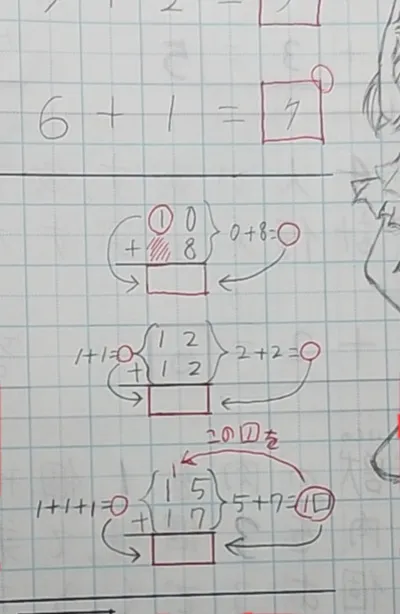 6 + 1 = 7
1 0
+ 8
0+8=
1+1=
1 2
+ 1 2
2+2=
この1を
1
1+1+1=
1 5
+ 1 7
5+7=1